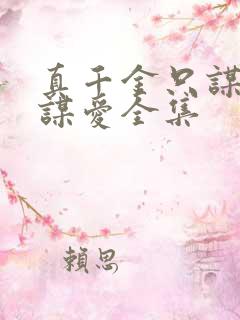 真千金只謀
謀愛全集
賴思